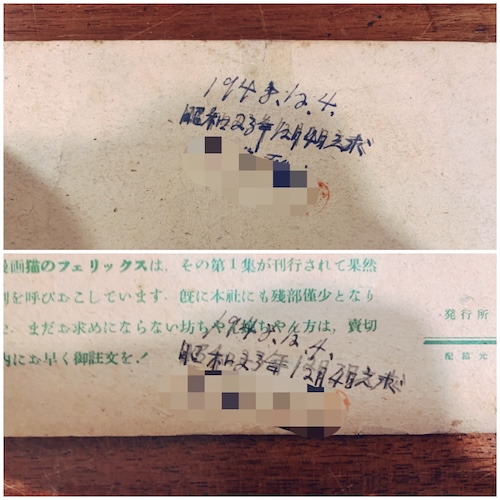 1948.12.4.
昭和23年12月4日之求
漫画猫のフェリックスは、その第1集が刊行されて果然
を呼びおこしています。既に本社にも残部僅少となり
まだお求めにならない坊ちゃん嬢ちゃん方は、賣切
内にお早く御註文を!
発行所
配給元
1948.12.4.
昭和23年12月4日之求